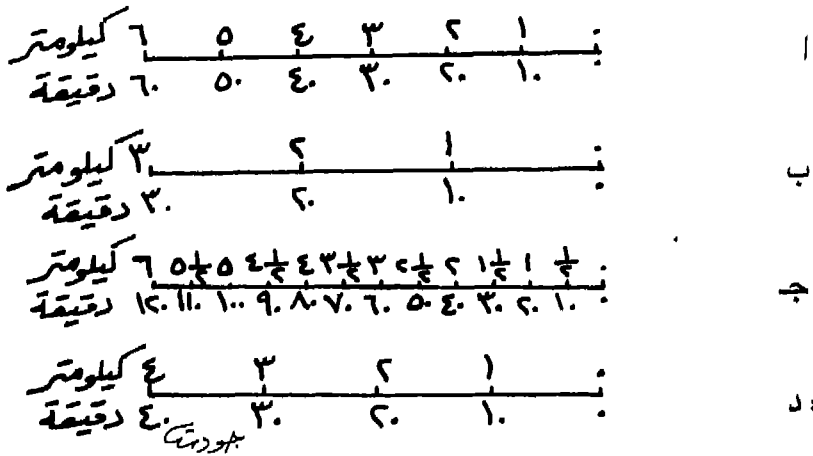 ا
٠ ١ ٢ ٣ ٤ ٥ ٦ كيلومتر
٠ ١٠ ٢٠ ٣٠ ٤٠ ٥٠ ٦٠ دقيقة
ب
١ ٢ ٣ كيلومتر
٠ ١٠ ٢٠ ٣٠ دقيقة
جـ
٠ ١/٢ ١ ١ ١/٢ ٢ ٢ ١/٢ ٣ ٣ ١/٢ ٤ ٤ ١/٢ ٥ ٥ ١/٢ ٦ كيلومتر
٠ ١٠ ٢٠ ٣٠ ٤٠ ٥٠ ٦٠ ٧٠ ٨٠ ٩٠ ١٠٠ ١١٠ ١٢٠ دقيقة
د
٠ ١ ٢ ٣ ٤ كيلومتر
٠ ١٠ ٢٠ ٣٠ ٤٠ دقيقة